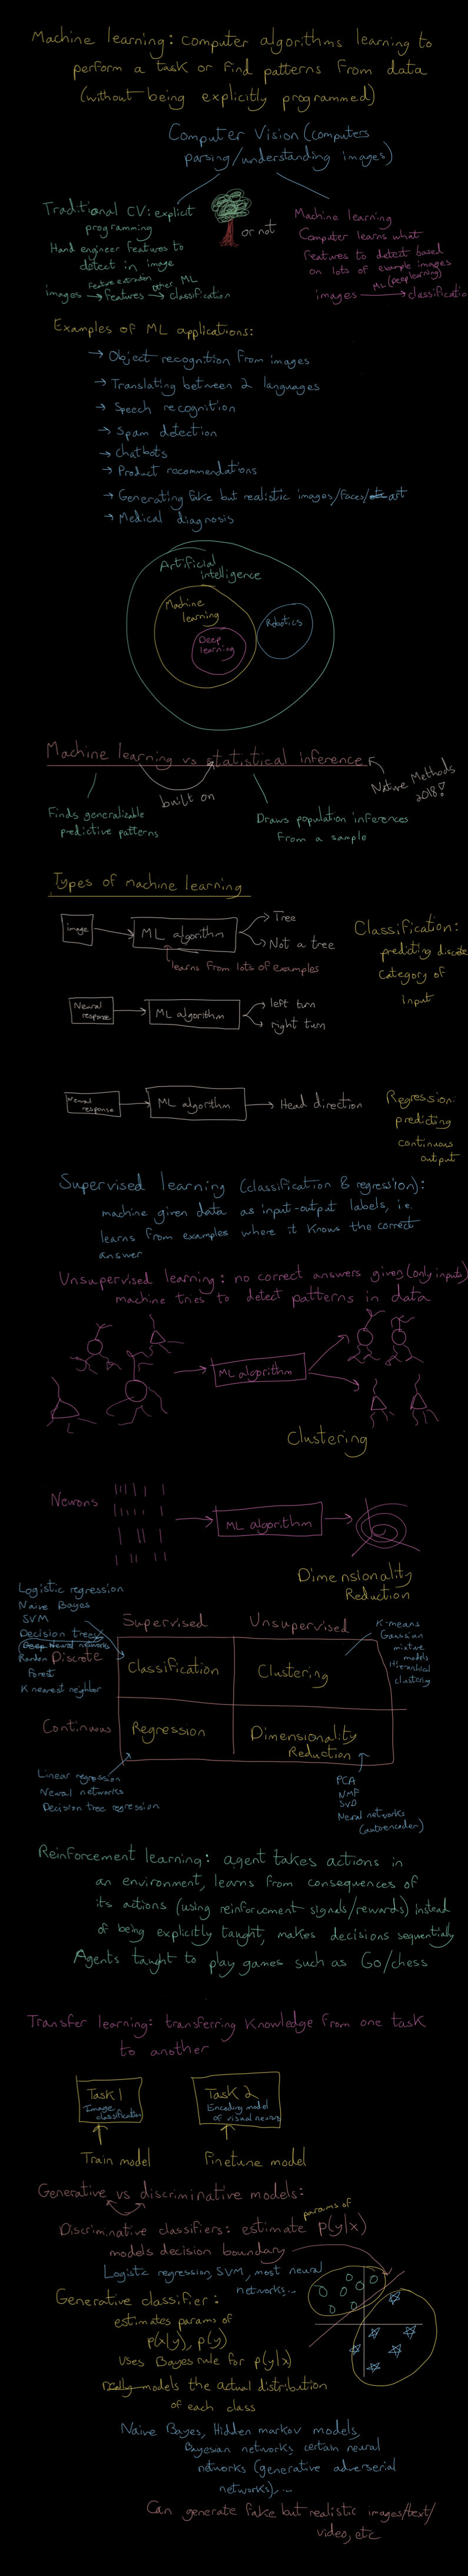 Machine learning: computer algorithms learning to
perform a task or find patterns from data
(without being explicitly programmed)
Computer Vision (computers
parsing/understanding images)
Traditional CV: explicit
programming
Hand engineer features to
detect in image
Feature extraction
other ML
images → features → classification
or not
Machine learning
Computer learns what
features to detect based
on lots of example images
ML (deep learning)
images → classificatio
Examples of ML applications:
→ Object recognition from images
→ Translating between 2 languages
→ Speech recognition
→ Spam detection
→ Chatbots
→ Product recommendations
→ Generating fake but realistic images/faces/art
→ Medical diagnosis
Artificial
intelligence
Machine
learning
Deep
learning
Robotics
Machine learning vs statistical inference
built on
Nature Methods
2018!
Finds generalizable
predictive patterns
Draws population inferences
from a sample
Types of machine learning
image
ML algorithm
Tree
Not a tree
learns from lots of examples
Classification:
predicting discrete
category of
input
Neural
response
ML algorithm
left turn
right turn
Neural
response
ML algorithm
Head direction
Regression:
predicting
continuous
output
Supervised learning (classification & regression):
machine given data as input-output labels, i.e.
learns from examples where it knows the correct
answer
Unsupervised learning: no correct answers given (only inputs)
machine tries to detect patterns in data
ML algorithm
Clustering
Neurons
ML algorithm
Dimensionality
Reduction
Logistic regression
Naive Bayes
SVM
Decision trees
Deep Neural networks
Random
Forest
K nearest neighbor
Supervised
Unsupervised
K-means
Gaussian
mixture
models
Hierarchical
clustering
Discrete
Classification
Clustering
Continuous
Regression
Dimensionality
Reduction
Linear regression
Neural networks
Decision tree regression
PCA
NMF
SVD
Neural networks
(autoencoder)
Reinforcement learning: agent takes actions in
an environment, learns from consequences of
its actions (using reinforcement signals/rewards) instead
of being explicitly taught, makes decisions sequentially
Agents taught to play games such as Go/chess
Transfer learning: transferring knowledge from one task
to another
Task 1
Image
classification
Task 2
Encoding model
of visual neurons
Train model
Finetune model
Generative vs discriminative models:
params of
Discriminative classifiers: estimate p(y|x)
models decision boundary
Logistic regression, SVM, most neural
networks...
Generative classifier:
estimates params of
p(x|y), p(y)
uses Bayes rule for p(y|x)
Really models the actual distribution
of each class
Naive Bayes, Hidden markov models,
Bayesian networks, certain neural
networks (generative adverserial
networks),...
Can generate fake but realistic images/text/
video, etc